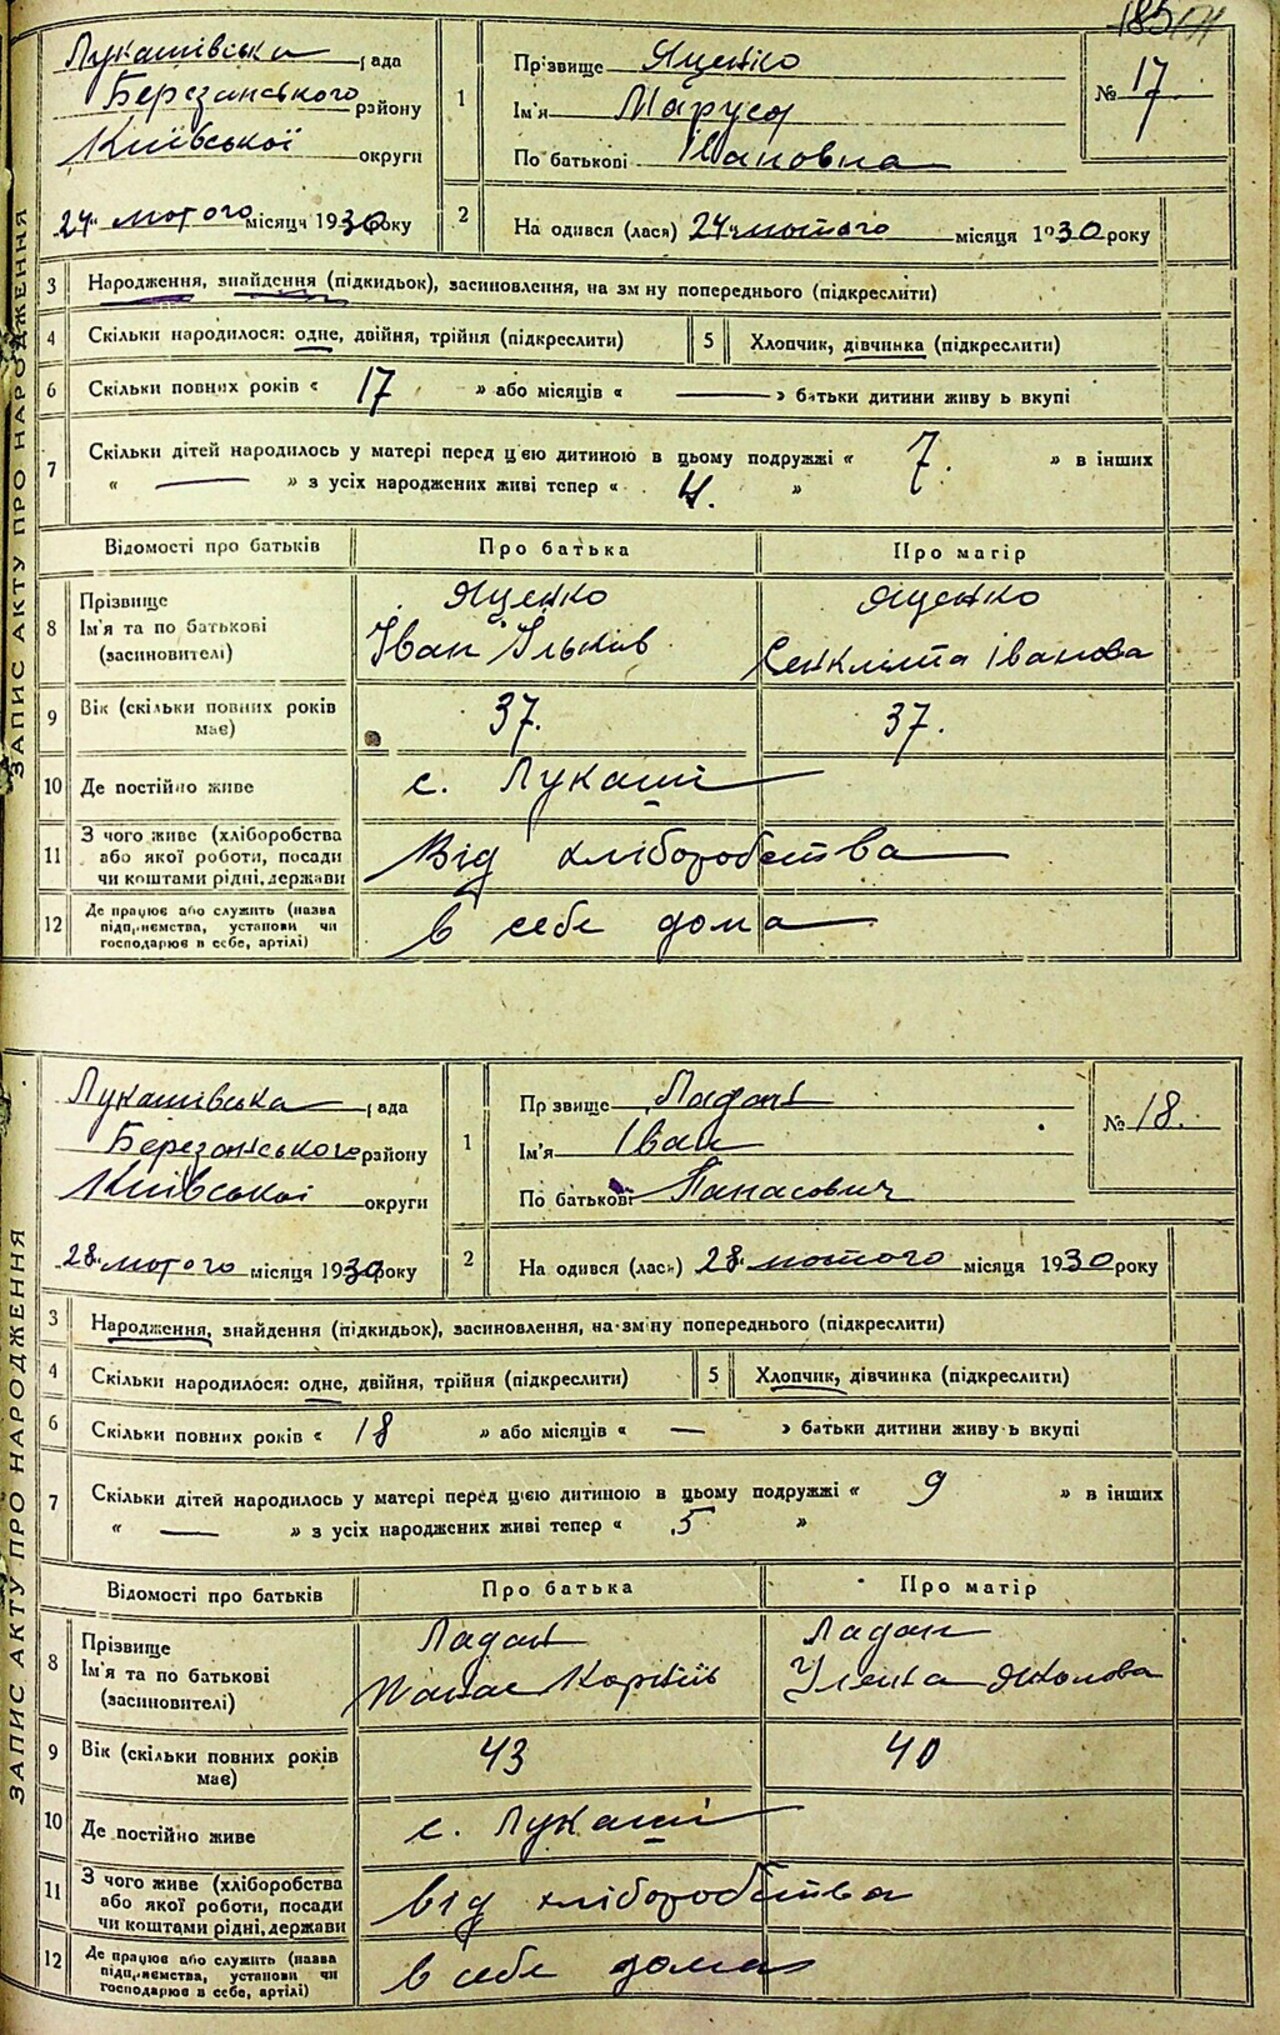 185
Лукашівська рада
Березанського району
Київської округи
24" лютого місяця 1930 року
1
Прізвище Яценко
Ім'я Маруся
По батькові Івановна
№ 17
2
Народився (лася) 24" лютого місяця 1930 року
ЗАПИС АКТУ ПРО НАРОДЖЕННЯ
3 Народження, знайдення (підкидьок), засиновлення, на зміну попереднього (підкреслити)
4 Скільки народилося: одне, двійня, трійня (підкреслити) 5 Хлопчик, дівчинка (підкреслити)
6 Скільки повних років « 17 » або місяців « — » батьки дитини живуть вкупі
7 Скільки дітей народилось у матері перед цією дитиною в цьому подружжі « 7. » в інших
« — » з усіх народжених живі тепер « 4. »
Відомості про батьків Про батька Про матір
8 Прізвище
Ім'я та по батькові
(засиновителі)
Яценко
Іван Ільків
Яценко
Іванова
9 Вік (скільки повних років
має)
37. 37.
10 Де постійно живе с. Лукаші
11 З чого живе (хліборобства
або якої роботи, посади
чи коштами рідні, держави
Від хліборобства
12 Де працює або служить (назва
підприємства, установи чи
господарює в себе, артілі)
в себе дома
Лукашівська рада
Березанського району
Київської округи
28" лютого місяця 1930 року
1
Прізвище Ладан
Ім'я Іван
По батькові Панасович
№ 18.
2
Народився (лася) 28" лютого місяця 1930 року
ЗАПИС АКТУ ПРО НАРОДЖЕННЯ
3 Народження, знайдення (підкидьок), засиновлення, на зміну попереднього (підкреслити)
4 Скільки народилося: одне, двійня, трійня (підкреслити) 5 Хлопчик, дівчинка (підкреслити)
6 Скільки повних років « 18 » або місяців « — » батьки дитини живуть вкупі
7 Скільки дітей народилось у матері перед цією дитиною в цьому подружжі « 9 » в інших
« — » з усіх народжених живі тепер « 5 »
Відомості про батьків Про батька Про матір
8 Прізвище
Ім'я та по батькові
(засиновителі)
Ладан
Панас Корніїв
Ладан
Уляна
9 Вік (скільки повних років
має)
43 40
10 Де постійно живе с. Лукаші
11 З чого живе (хліборобства
або якої роботи, посади
чи коштами рідні, держави
від хліборобства
12 Де працює або служить (назва
підприємства, установи чи
господарює в себе, артілі)
в себе дома